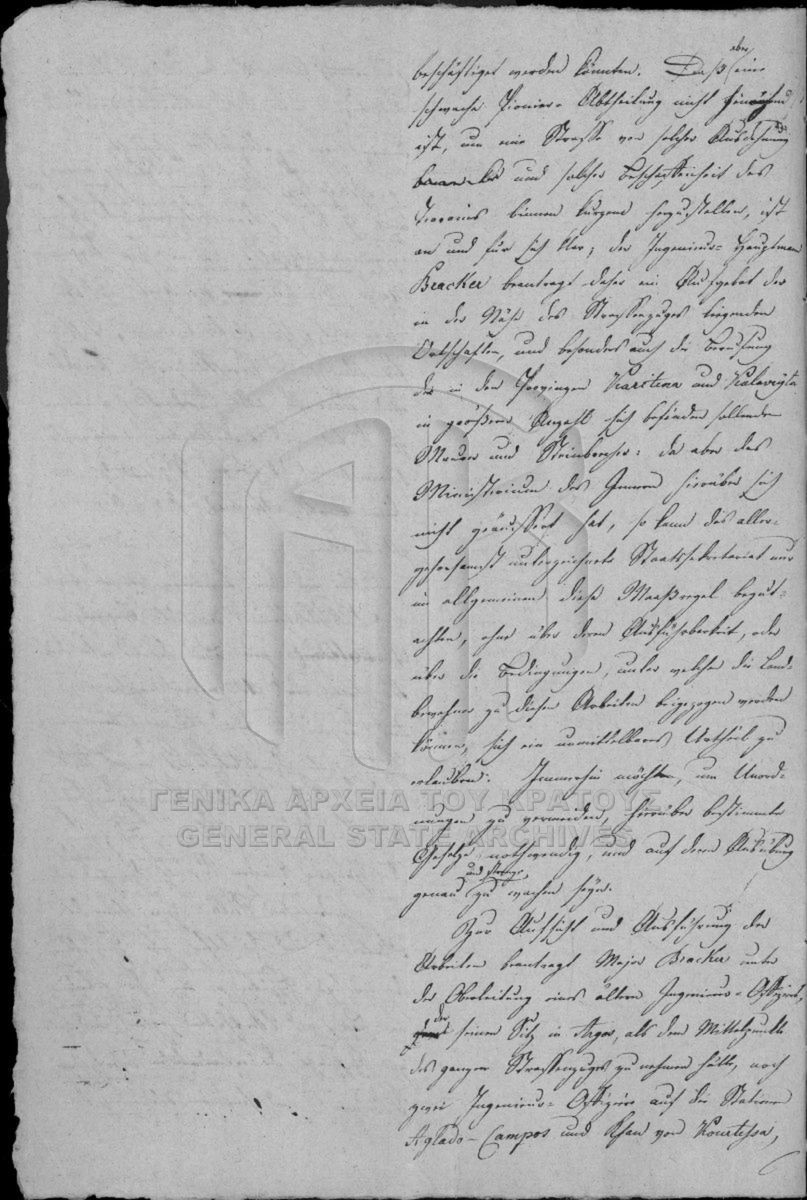 aber
beschäftiget werden könnten. Daß eine
schwache Pionier-Abtheilung nicht hinreichend
ist, um eine Strasse von solcher Ausdehnung
und solcher Beschaffenheit des
Terrains binnen kurzem herzustellen, ist
an und für sich klar; der Ingenieur-Hauptmann
Bracker beantragt daher ein Aufgebot der
in der Nähe des Strassenzuges liegenden
Ortschaften, und besonders auch die Berufung
der in den Provinzen Karitena und Kalavryta
in größerer Anzahl sich befinden sollenden
Maurer und Steinbrecher: da aber das
Ministerium des Innern hierüber sich
nicht geäussert hat, so kann das aller-
gehorsamst unterzeichnete Staatssekretariat nur
im allgemeinen diese Maaßregel begut-
achten, ohne über deren Ausführbarkeit, oder
über die Bedingungen, unter welchen die Land-
bewohner zu diesen Arbeiten beigezogen werden
können, sich ein unmittelbares Urtheil zu
erlauben. Immerhin möchten, um Unord-
nungen zu vermeiden, hierüber bestimmte
Gesetze nothwendig, und auf deren Ausübung
und strenge
genau zu wachen seyn.
Zur Aufsicht und Ausführung der
Arbeiten beantragt Major Bracker unter
der Oberleitung eines ältern Ingenieur-Offiziers,
der
seinen Sitz in Argos, als dem Mittelpunkte
des ganzen Strassenzuges zu nehmen hätte, noch
zwei Ingenieur-Offiziere auf die Stationen
Aglado-Campos und Khan von Kourtessa,
ΓΕΝΙΚΑ ΑΡΧΕΙΑ ΤΟΥ ΚΡΑΤΟΥΣ
GENERAL STATE ARCHIVES